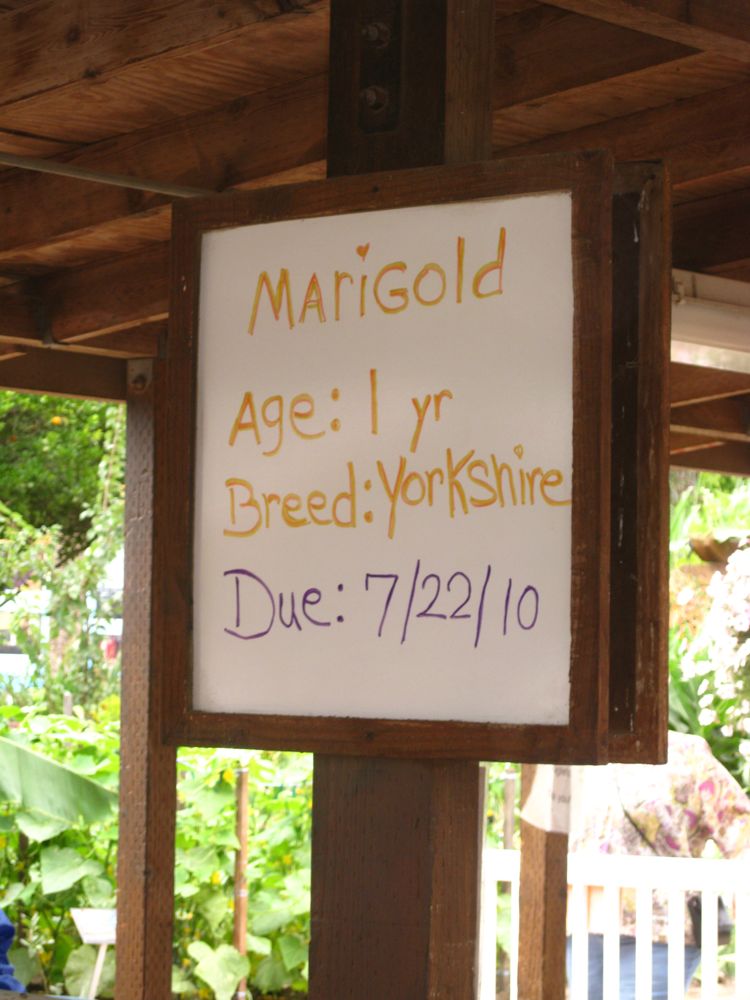 MAriGold
Age: 1 yr
Breed: YorKshire
Due: 7/22/10